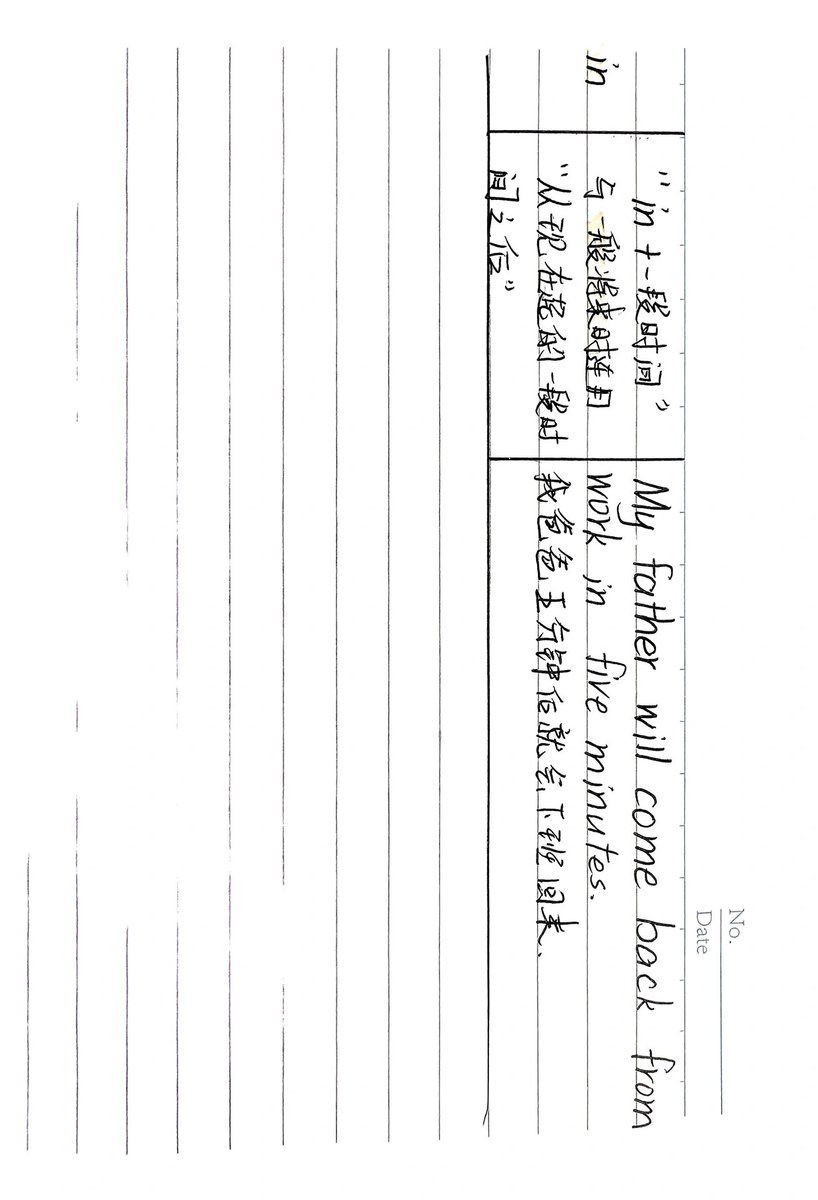 No.
Date
in
"in+一段时间"
与一般将来时连用
"从现在起的一段时
间之后"
My father will come back from
work in five minutes.
我爸爸五分钟后就会下班回来.